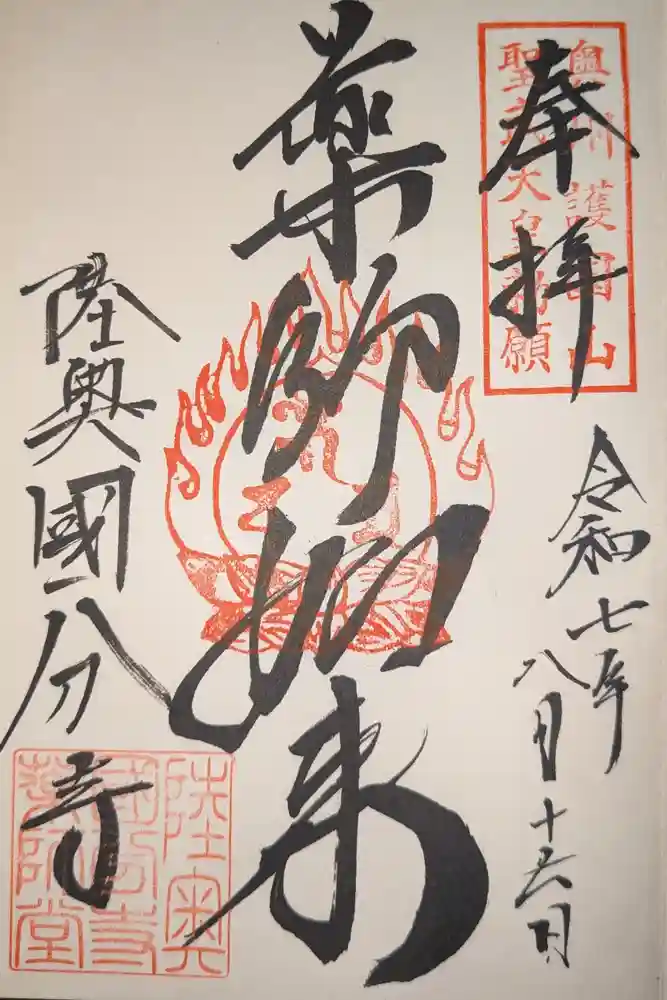 奉拝
奥州護国山
聖武天皇勅願
令和七年
八月十六日
薬師如来
陸奥國分寺
陸奥
國分寺
薬師堂